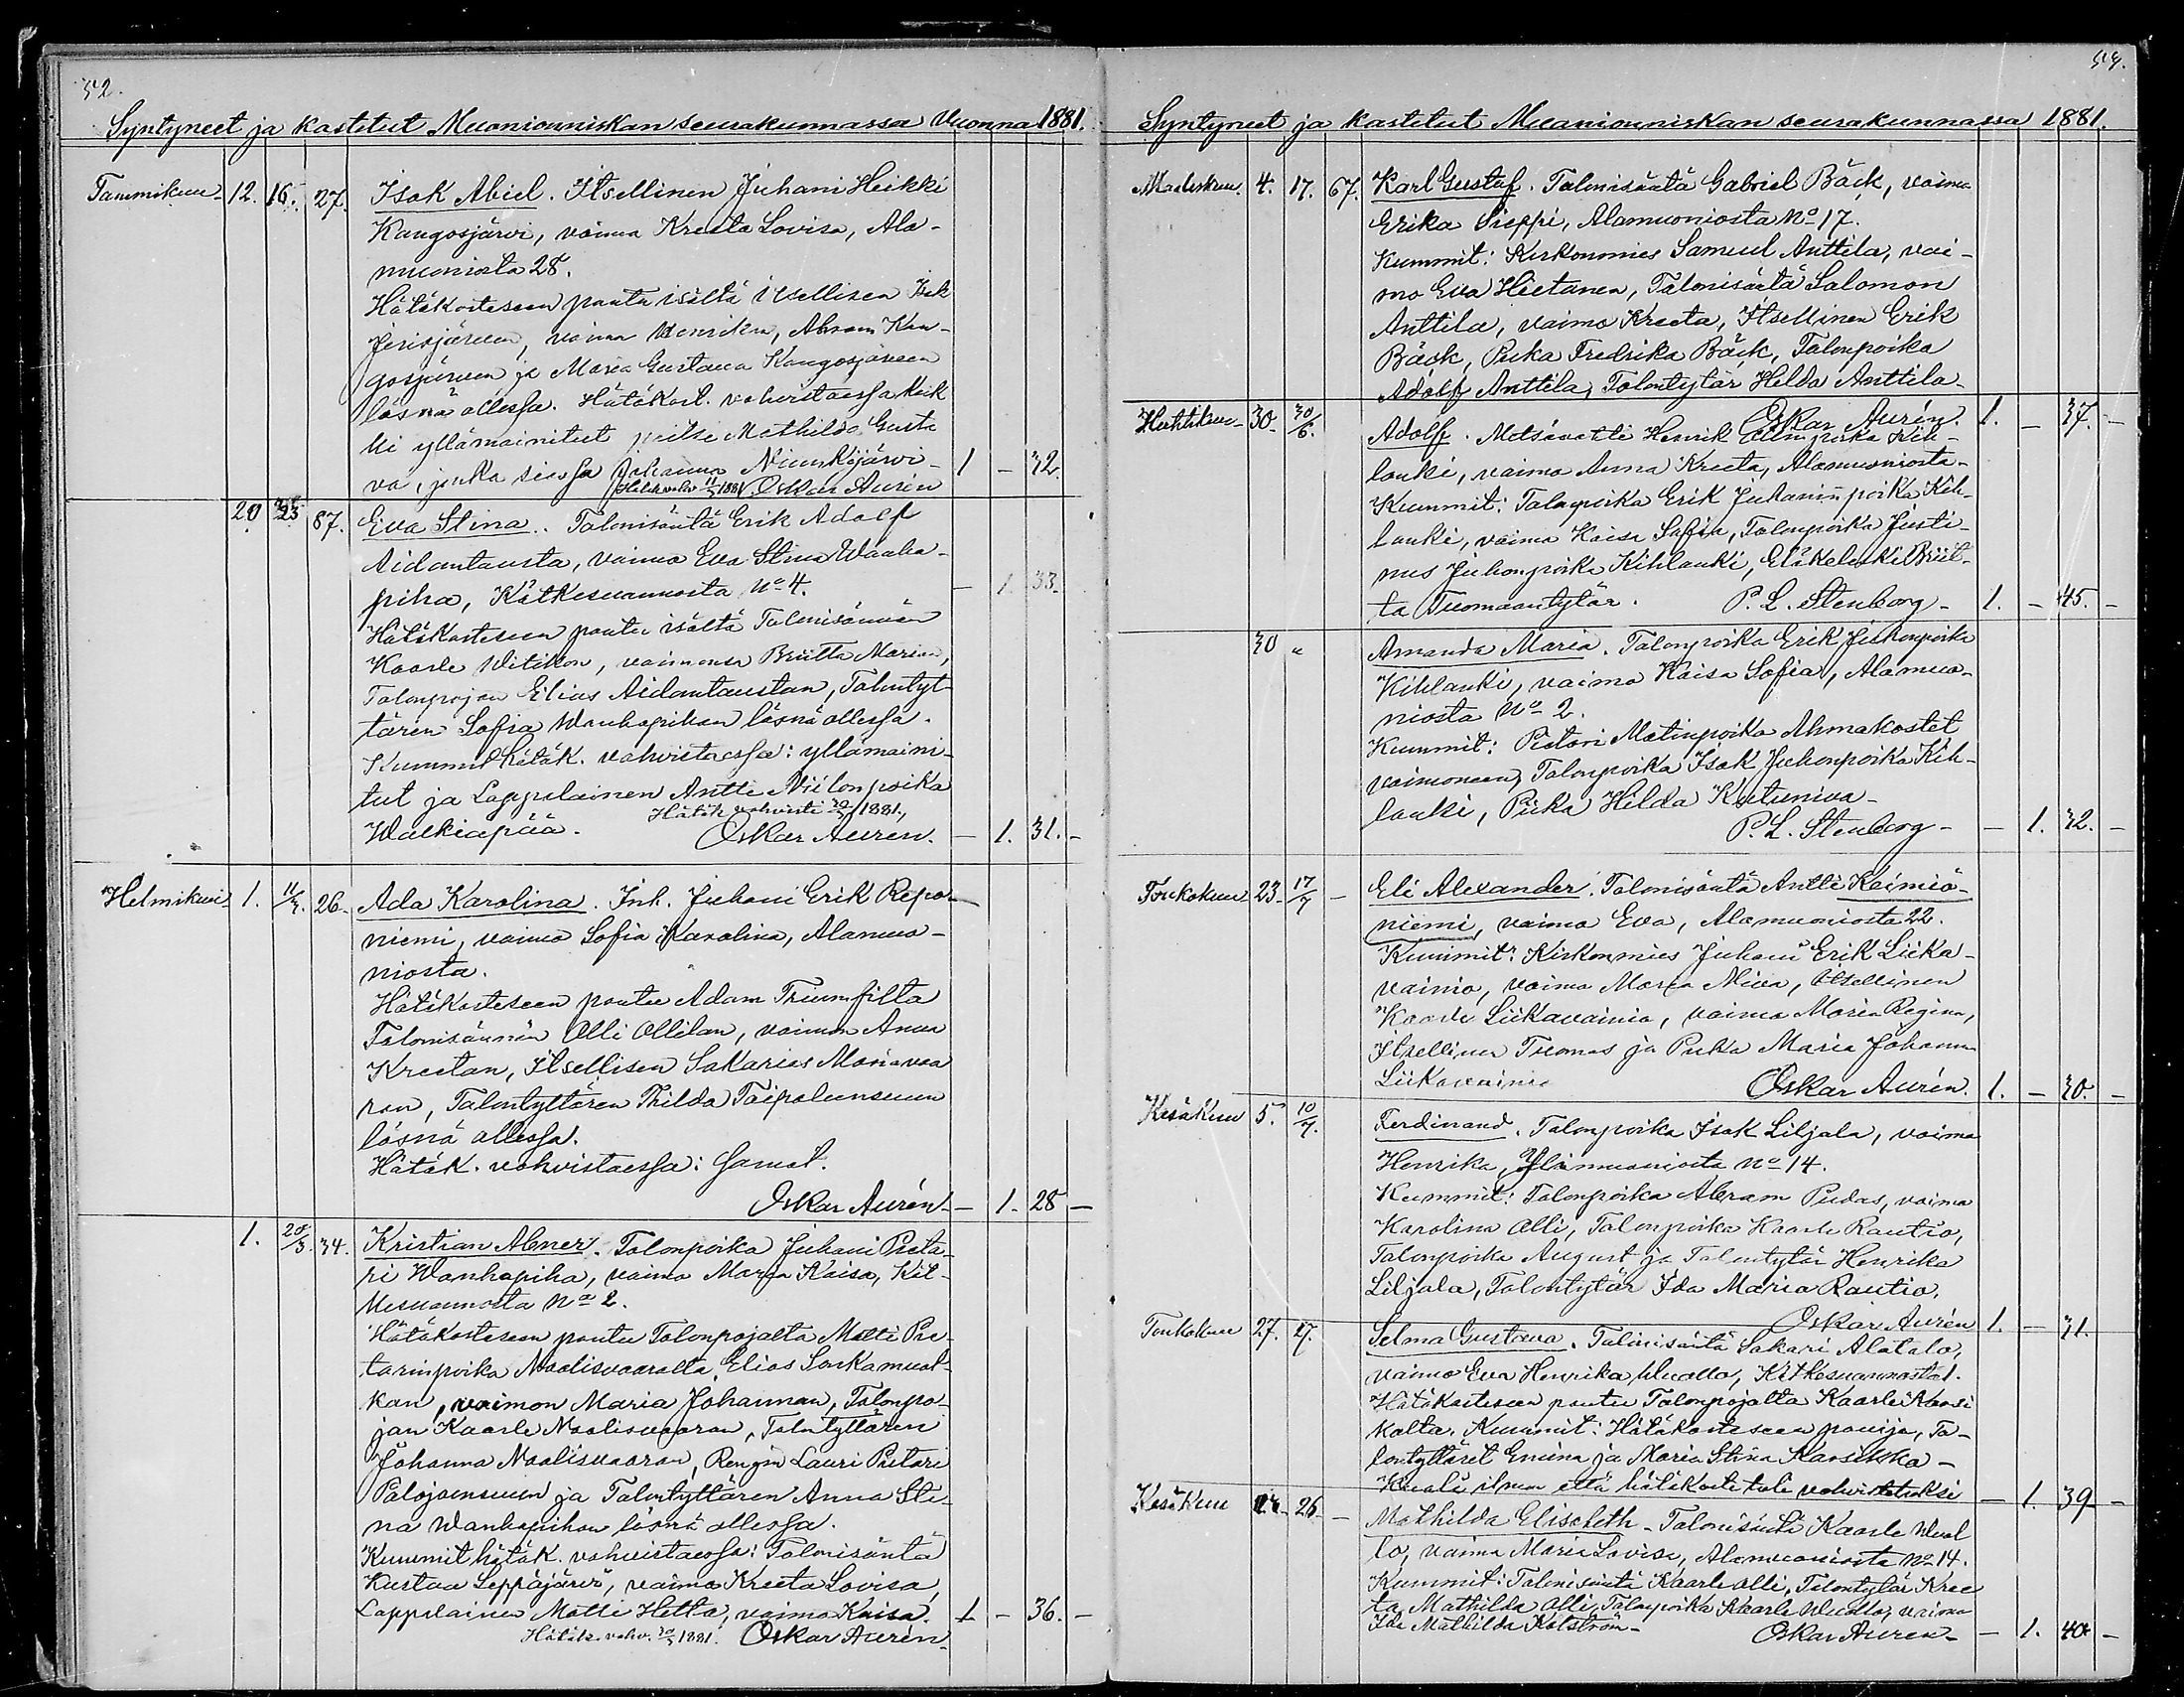 52.
Syntyneet ja kastetut Muonionniskan seurakunnassa Vuonna 1881.
Tammikuu 12. 16. 27. Isak Abiel. Itsellinen Juhani Heikki
Kangosjärvi, vaimo Kreeta Lovisa, Ala-
muoniosta 28.
Hätäkasteseen pantu isältä itsellisen Isak
Jerisjärven, vaimo Henrikan, Abram Kan-
gosjärven ja Maria Gustava Kangosjärven
läsnä ollessa. Hätäkast. vahvistaessa kaik
ki yllämainitut paitse Mathilda Gusta
va, jonka siassa Johanna Niemkijärvi 1 - 32.
Hätäk. vahv. 11/3 1881 Oskar Aurén
20 23 87. Eva Stina. Talonisäntä Erik Adolf
Aidantausta, vaimo Eva Stina Wanha-
piha, Kätkesuannosta No 4. - 1. 33.
Hätäkasteseen pantu isältä Talonisännän
Kaarle Witikon, vaimonsa Briitta Marian,
Talonpojan Elias Aidantaustan, Talontyt-
tären Sofia Wanhapihan läsnä ollessa.
Kummit hätäk. vahvistaessa: yllämaini-
tut ja Lappalainen Antti Niilonpoika
Walkiapää. Hätäk vahvisti 1881.
Oskar Aurén. - 1. 31. -
Helmikuu 1. 11/3. 26. Ada Karolina. Inh. Juhani Erik Repo-
niemi, vaimo Sofia Karolina, Alamuo-
niosta.
Hätäkasteseen pantu Adam Triumfilta
Talonisännän Olli Ollilan, vaimon Anna
Kreetan, Itsellisen Sakarias Mariavaa
ran, Talontyttären Thilda Taipaleensuun
läsnä ollessa.
Hätäk. vahvistaessa: Samat.
Oskar Aurén - 1. 28 -
1. 20/3. 34. Kristian Abner. Talonpoika Juhani Pieta-
ri Wanhapiha, vaimo Marja Kaisa, Kät-
kesuannosta No 2.
Hätäkasteseen pantu Talonpojalta Matti Pie-
tarinpoika Maalisvaaralta, Elias Sonkamuot-
kan, vaimon Maria Johannan, Talonpo-
jan Kaarle Maalisvaaran, Talontyttären
Johanna Maalisvaaran, Rengin Lauri Pietari
Palojoensuun ja Talontyttären Anna Sti-
na Wanhapihan läsnä ollessa.
Kummit hätäk. vahvistaessa: Talonisäntä
Kustaa Leppäjärvi, vaimo Kreeta Lovisa,
Lappalainen Matti Hetta, vaimo Kaisa. 1 - 36. -
Hätäk. vahv. 20/3 1881. Oskar Aurén
53.
Syntyneet ja kastetut Muonionniskan seurakunnassa 1881.
Maaliskuu. 4. 17. 67. Karl Gustaf. Talonisäntä Gabriel Bäck, vaimo
Erika Sieppi, Alamuoniosta No 17.
Kummit: Kirkonmies Samuel Anttila, vai-
mo Eva Hietanen, Talonisäntä Salomon
Anttila, vaimo Kreeta, Itsellinen Erik
Bäck, Piika Fredrika Bäck, Talonpoika
Adolf Anttila, Talontytär Hilda Anttila.
Oskar Aurén. 1. - 37. -
Huhtikuu 30. 30/6. Adolf. Metsävahti Henrik Olinpoika Kih-
lanki, vaimo Anna Kreeta, Alamuoniosta.
Kummit: Talonpoika Erik Juhaninpoika Kih-
lanki, vaimo Kaisa Sofia, Talonpoika Justi-
nus Juhonpoika Kihlanki, Eläkeleski Briit-
ta Tuomaantytär. P. L. Stenborg 1. - 45. -
30 " Amanda Maria. Talonpoika Erik Juhonpoika
Kihlanki, vaimo Kaisa Sofia, Alamuo-
niosta No 2.
Kummit: Pietari Matinpoika Ahmakostet
vaimoneen, Talonpoika Isak Juhonpoika Kih-
lanki, Piika Hilda Kutuniva
P. L. Stenborg - 1. 32. -
Toukokuu 23. 17/7 - Eli Alexander. Talonisäntä Antti Keimiö-
niemi, vaimo Eva, Alamuoniosta 22.
Kummit: Kirkonmies Juhani Erik Liika-
vainio, vaimo Maria Niva, Itsellinen
Kaarle Liikavainio, vaimo Maria Regina,
Itsellinen Tuomas ja Piika Maria Johanna
Liikavainio Oskar Aurén. 1. - 30. -
Kesäkuu 5. 10/7. Ferdinand. Talonpoika Isak Liljala, vaimo
Henrika, Ylimuoniosta No 14.
Kummit: Talonpoika Abram Pudas, vaimo
Karolina Olli, Talonpoika Kaarle Rautio,
Talonpoika August ja Talontytär Henrika
Liljala, Talontytär Ida Maria Rautio.
Oskar Aurén 1. - 31.
Toukokuu 27. 17. Selma Gustava. Talonisäntä Sakari Alatalo,
vaimo Eva Henrika Wuollo, Kätkesuannosta 1.
Hätäkasteseen pantu Talonpojalta Kaarle Kansi
kalta. Kummit: Hätäkasteseen panija, Ta-
lontyttäret Emina ja Maria Stina Kansikka
Kuoli ilman että hätäkaste tuli vahvistetuksi - 1. 39 -
Kesäkuu 26. - Mathilda Elisabeth. Talonisäntä Kaarle Wuol
lo, vaimo Maria Lovisa, Alamuoniosta No 14.
Kummit: Talonisäntä Kaarle Olli, Talontytär Kree
ta Mathilda Olli, Talonpoika Kaarle Wuollo, vaimo
Ida Mathilda Kolström Oskar Aurén - 1. 40. -